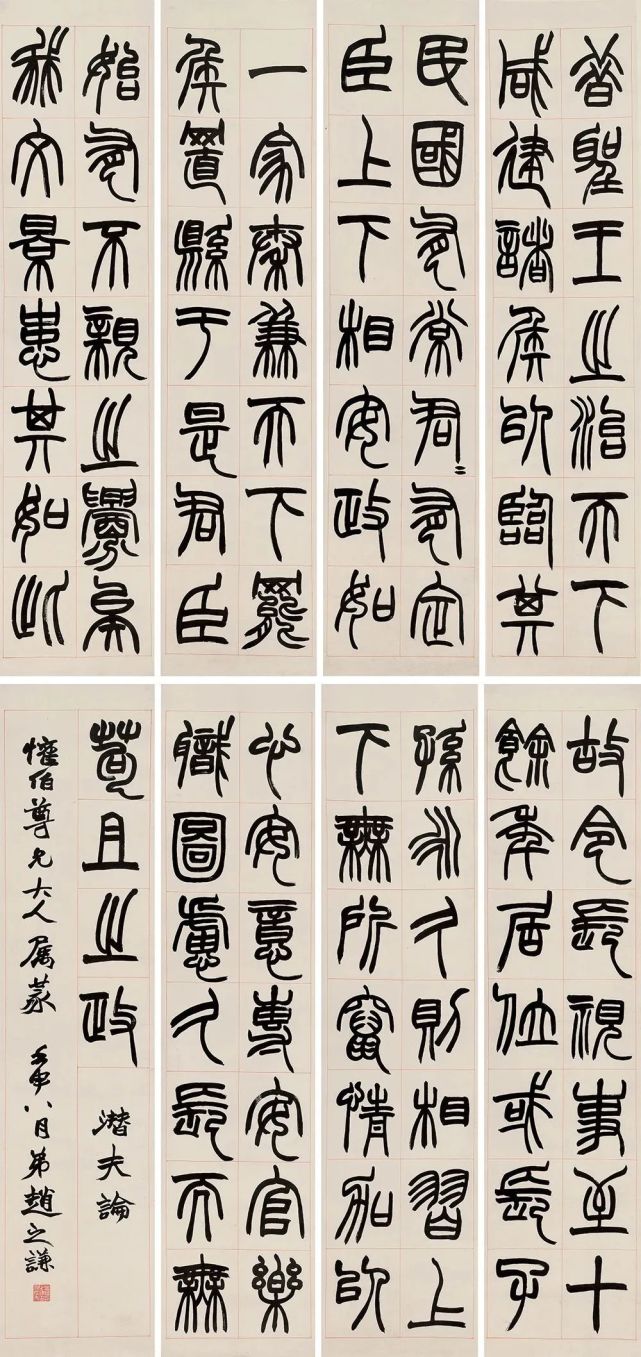 昔聖王之治天下
咸建諸侯以臨其
民國有常君〻有定
臣上下相安政如
一家秦兼天下罷
侯置縣于是君臣
始有不親之釁矣
我文景患其如此
故令長視事至十
餘年居位或長子
孫永久則相習上
下無所竄情加以
心安意專安官樂
職圖慮久長而無
苟且之政
潛夫論
懽伯尊兄大人屬篆 壬申八月弟趙之謙